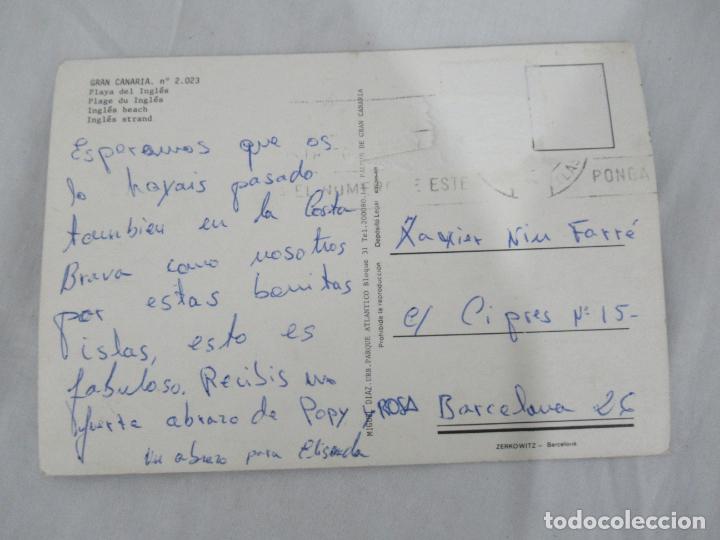 GRAN CANARIA. nº 2.023
Playa del Inglés
Plage du Inglés
Inglés beach
Inglés strand
Esperamos que os
lo hayais pasado
tambien en la Costa
Brava como nosotros
por estas bonitas
islas, esto es
fabuloso. Recibis un
fuerte abrazo de Popy y ROSA
un abrazo para Elisenda
MIGUEL DIAZ.URB.PARQUE ATLANTICO Bloque 31 Tel.200080. PALMAS DE GRAN CANARIA
Prohibida la reproducción Depósito Legal
EL NUMERO DE ESTE
PONGA
Xavier Niu Farré
c/ Cipres Nº 15-
Barcelona 26
ZERKOWITZ - Barcelona
todocoleccion
todocoleccion.net